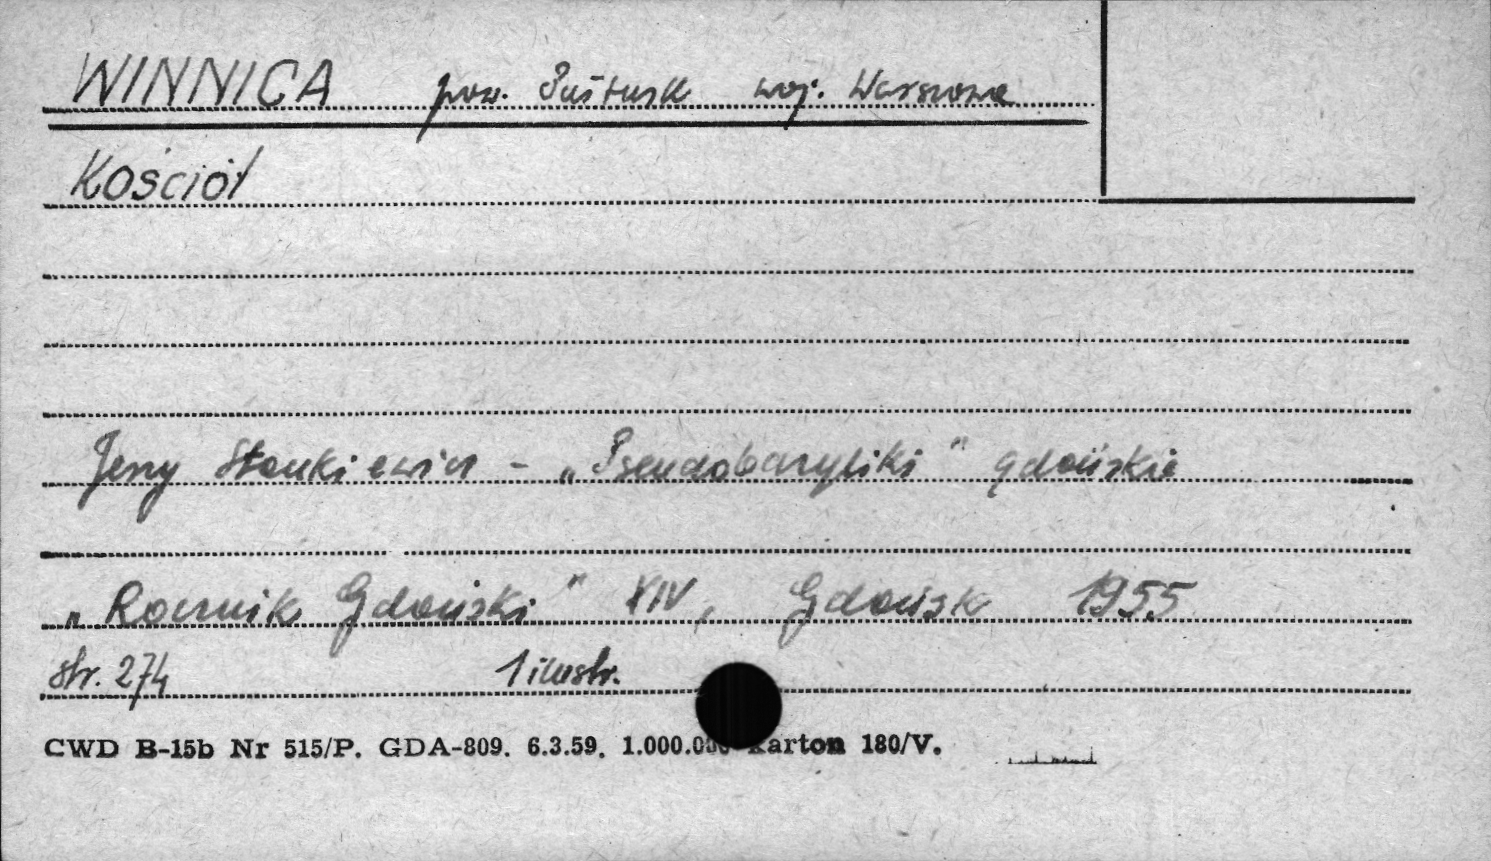 WINNICA pow. Pułtusk woj. Warszawa
Kościół
Jerzy Stankiewicz - „Pseudobazyliki" gdańskie
„Rocznik Gdański" XIV, Gdańsk 1955
str. 274 1 ilustr.
CWD B-15b Nr 515/P. GDA-809. 6.3.59. 1.000.000 Karton 180/V.